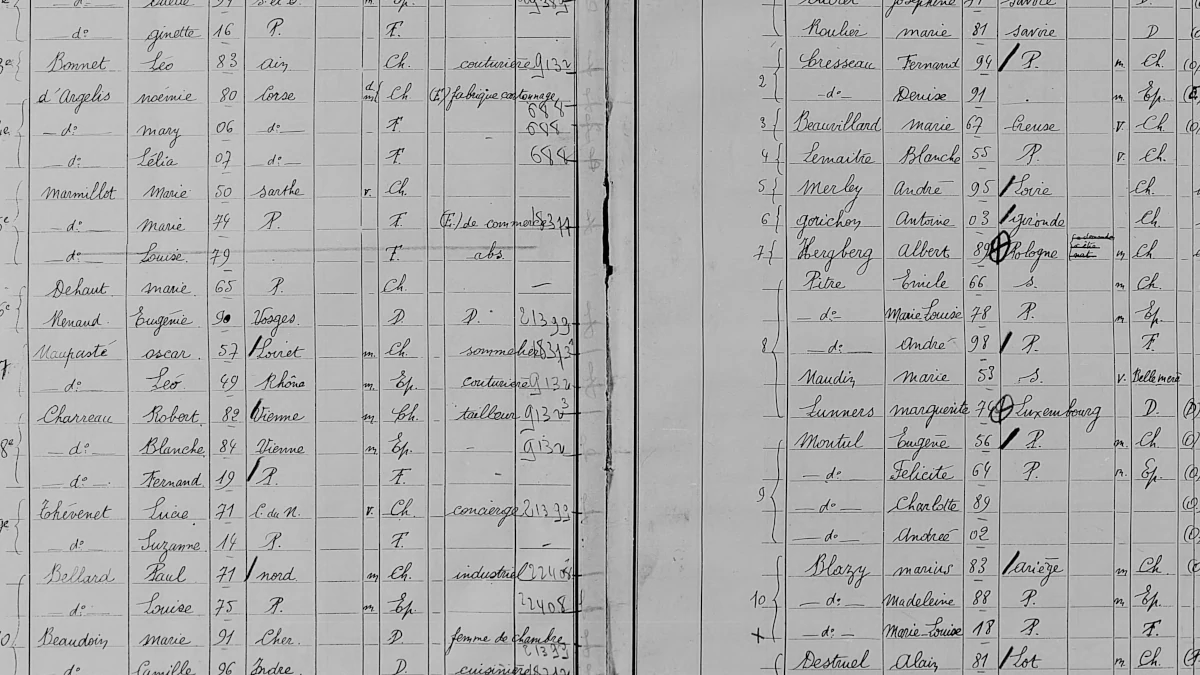 d° ginette 16 P. F.
Bonnet Léo 83 Ain Ch. couturière 9132
d'Argelis noémie 80 Corse d m Ch (E) fabrique cartonnage 688
d° mary 06 d° F. - 688
d° Lélia 07 d° F. 688
Marmillot Marie 50 Sarthe v. Ch.
d° Marie 74 P. F. (E.) de commerce 18377
d° Louise 79 F. abs.
Dehaut marie 65 P. Ch. —
Renaud Eugénie 90 Vosges D. D. 21399
Naupasté oscar 57 Loiret m. Ch. sommelier
d° Léo 49 Rhône m. Ep. couturière 9132
Charreau Robert 82 Vienne m Ch. tailleur 9132
d° Blanche 84 Vienne m. Ep. - 9132
d° Fernand 19 P. F. -
Thévenet Lucie 71 C. du N. v. Ch. concierge 21399
d° Suzanne 14 P. F. —
Bellard Paul 71 nord m Ch. industriel 22408
d° Louise 75 P. m Ep. 22408
Beaudoin marie 91 Cher D femme de chambre 21399
d° Camille 96 Indre D. cuisinière
Roulier marie 81 Savoie D
2 Cresseau Fernand 94 P. m Ch.
d° Denise 91 . m Ep.
3 Beauvillard marie 67 Creuse v. Ch.
4 Lemaitre Blanche 55 P. v. Ch.
5 Merley André 95 Loire Ch.
6 gorichon Antoine 03 gironde Ch
7 Hergberg Albert 89 Pologne m Ch
Pitre Emile 66 s. m Ch.
d° Marie Louise 78 P. m Ep.
8 d° André 98 P. F.
Naudin marie 53 s. v. Belle mère
Lunners marguerite 74 Luxembourg D.
Montul Eugène 56 P. m. Ch.
d° Felicité 64 P. m. Ep.
9 d° Charlotte 89
d° Andreé 02
Blazy marius 83 ariège m Ch
10 d° Madeleine 88 P. m Ep.
d° Marie-Louise 18 P. F.
Destruel Alain 81 Lot m Ch.